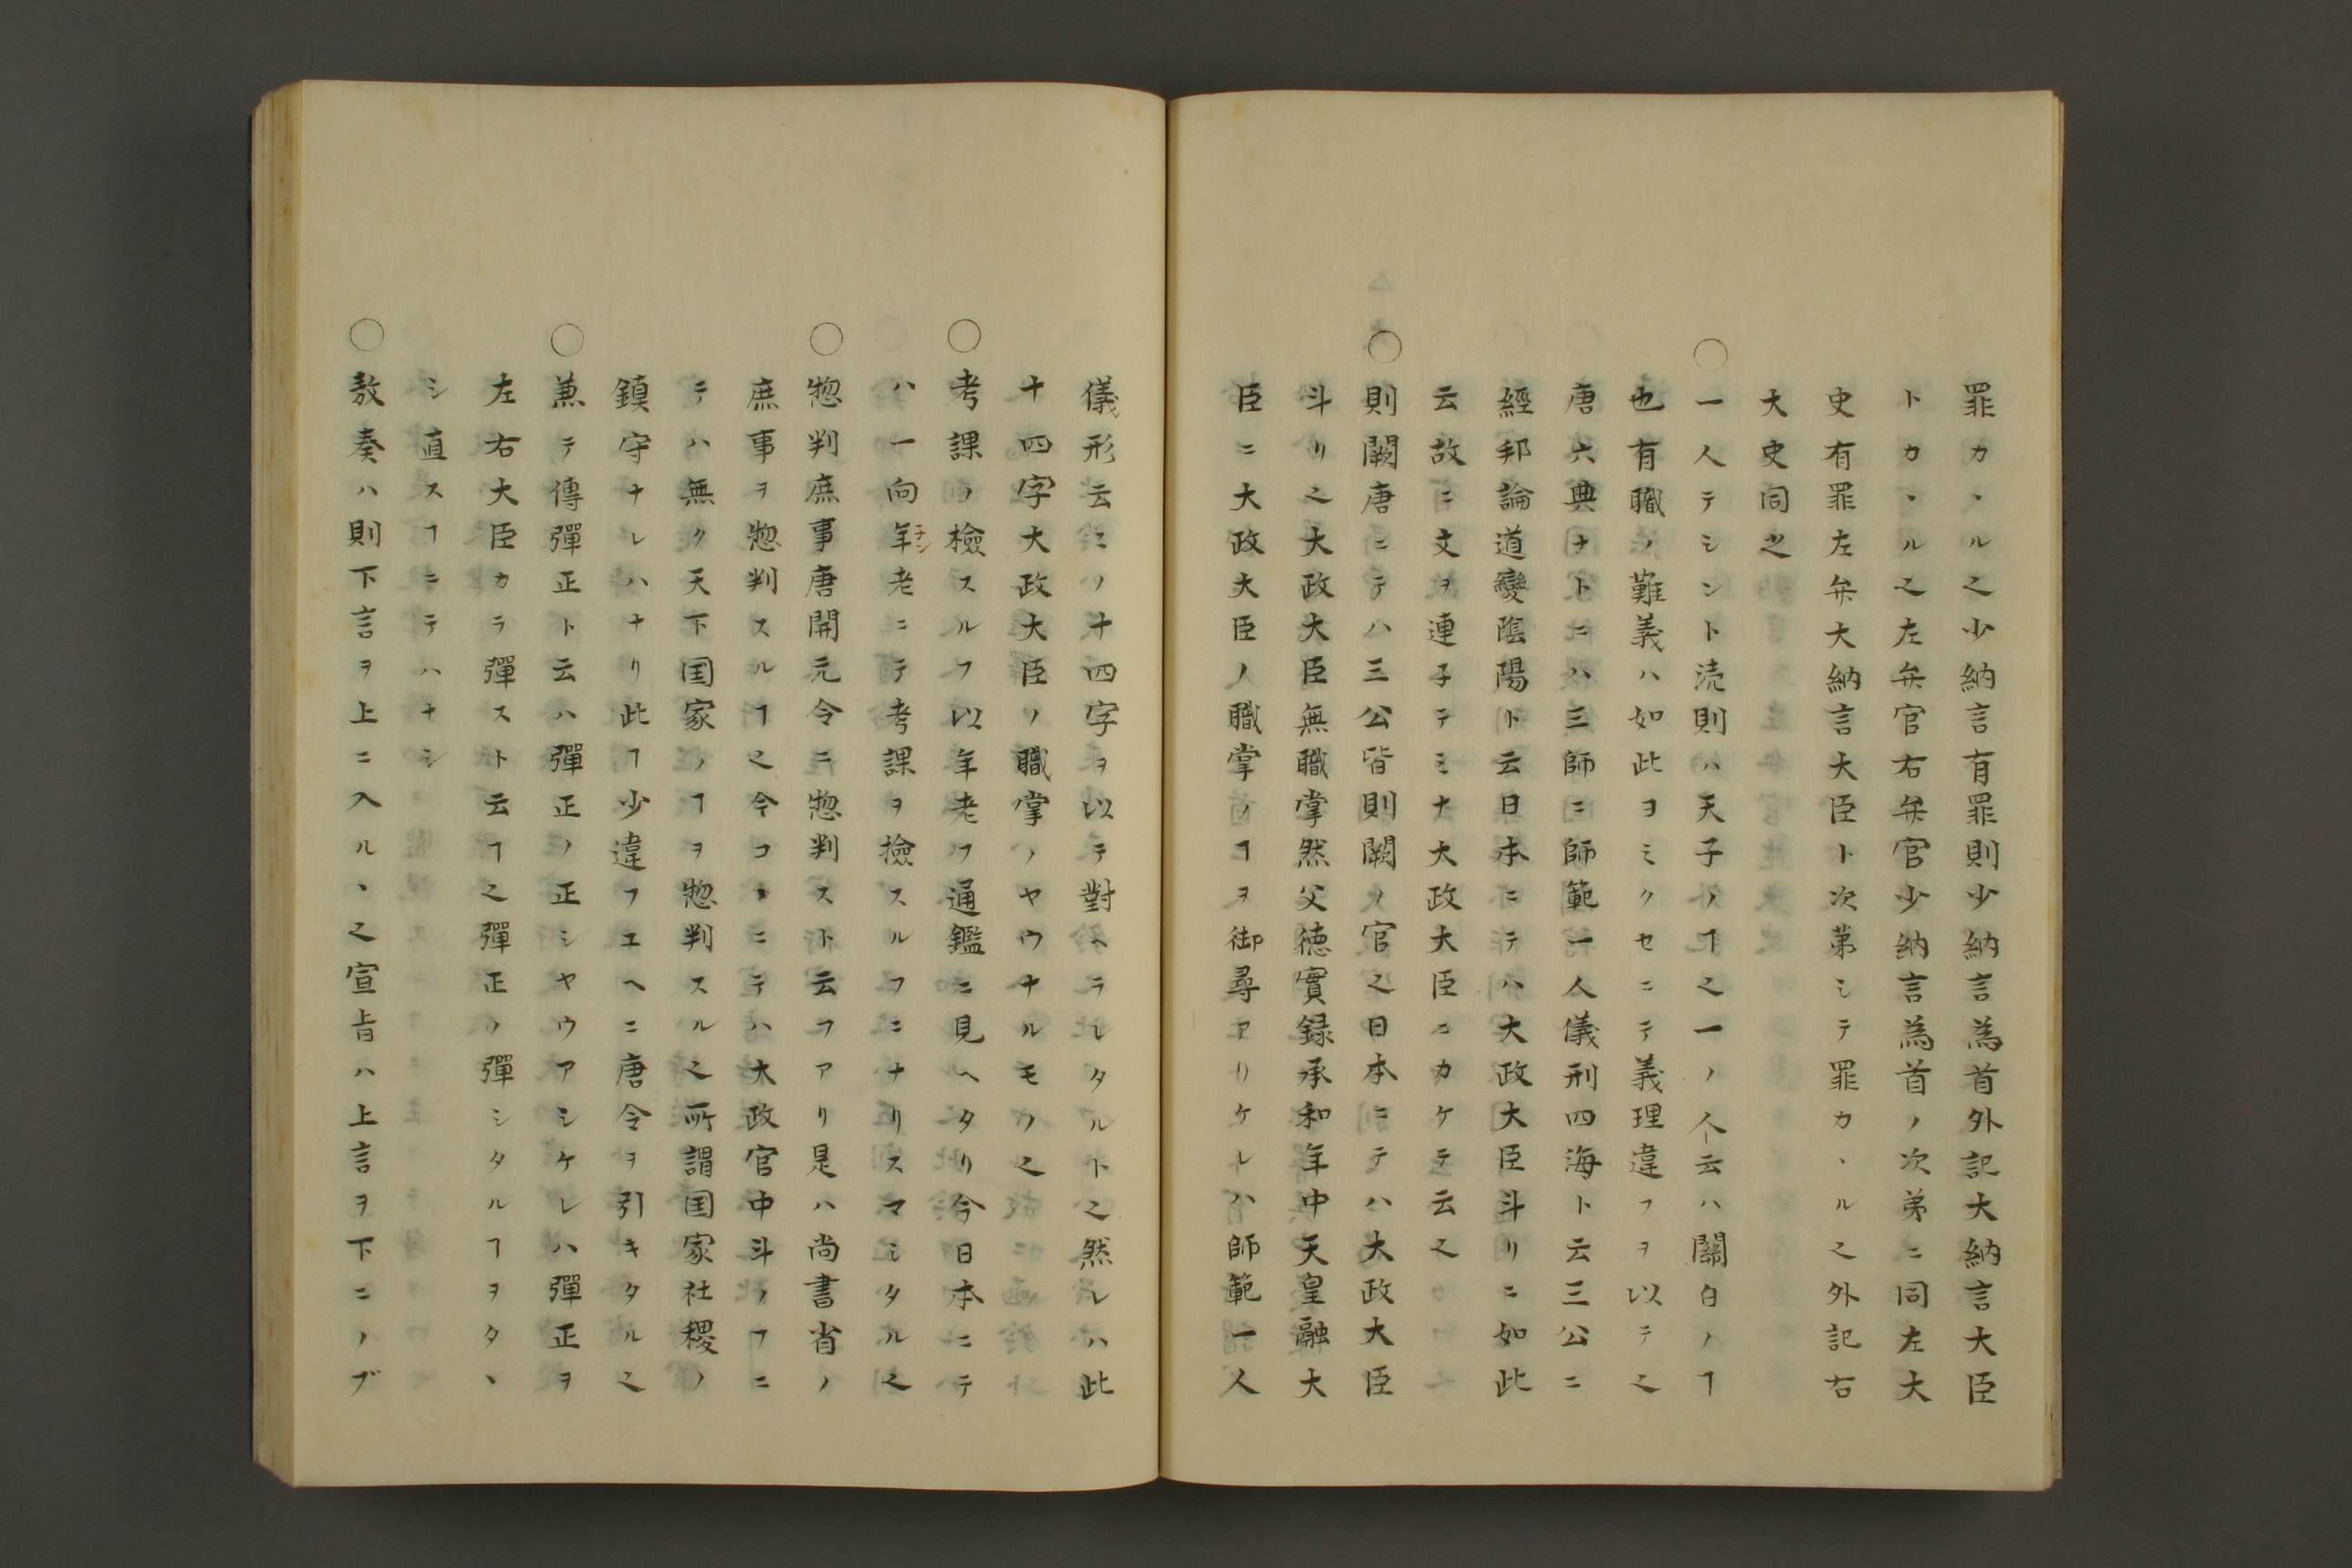 罪カヽル之少納言有罪則少納言為首外記大納言大臣
トカヽル之左弁官右弁官少納言為首ノ次第ニ同左大
史有罪左弁大納言大臣ト次第シテ罪カヽル之外記右
大史同之
○一人テシント読則ハ天子ノヿ之一ノ人ト云ハ關白ノヿ
也有職ノ難義ハ如此ヨミクセニテ義理違フヲ以テ之
唐六典ナトニハ三師ニ師範一人儀刑四海ト云三公ニ
經邦論道變陰陽ト云日本ニテハ大政大臣斗リニ如此
云故ニ文ヲ連子テミナ大政大臣ニカケテ云之
○則闕唐ニテハ三公皆則闕ノ官之日本ニテハ大政大臣
斗リ之大政大臣無職掌然父徳實録承和年中天皇融大
臣ニ大政大臣ノ職掌ノヿヲ御尋アリケレハ師範一人
儀形云ニノ十四字ヲ以テ對ヘラレタルト之然レハ此
十四字大政大臣ノ職掌ノヤウナルモノ之
○考課ノ檢スルフ以年老フ通鑑ニ見ヘタリ今日本ニテ
ハ一向年チシ老ニテ考課ヲ撿スルフニナリスマシタル之
○惣判庶事唐開元令ニ惣判スト云フアリ是ハ尚書省ノ
庶事ヲ惣判スルヿ之今コヽニテハ大政官中斗ノフニ
テハ無ク天下囯家ノヿヲ惣判スル之所謂囯家社稷ノ
鎮守ナレハナリ此ヿ少違フユヘニ唐令ヲ引キタル之
○兼テ傳彈正ト云ハ彈正ノ正シヤウアシケレハ彈正ヲ
左右大臣カラ彈スト云ヿ之彈正ノ彈シタルヿヲタヽ
シ直スヿニテハナシ
○敖奏ハ則下言ヲ上ニ入ルヽ之宣旨ハ上言ヲ下ニノブ